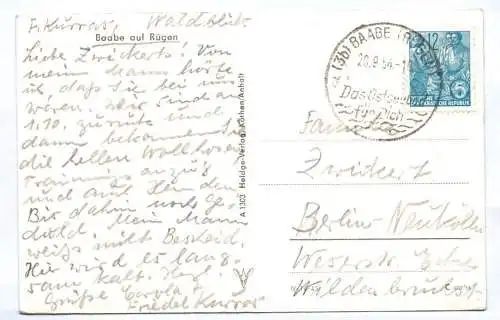 F. Kurras, Waldblick
Baabe auf Rügen
Liebe Zwickerts! Von
mein Mann hörte
ich, daß Sie bei uns
waren. Wir sind am
1.10. zurück und
dann bekommen Sie
die hellen Wollhosen,
Trainingsanzug
und auch Hemden.
Bis dahin noch Ge-
duld. Mein Mann
weiß nicht Bescheid.
Hier wird es lang-
sam kalt. Herzl.
Grüße
Friedel Kurras
A 1303 Heldge-Verlag, Köthen/Anhalt
(3b) BAABE (RÜGEN)
20.9.54
Das Ostseebad
für Dich
12
DEUTSCHE DEMOKRATISCHE REPUBLIK
Fam.
Zwickert
Berlin-Neukölln
Weserstr. Ecke
Wildenbruchstr.